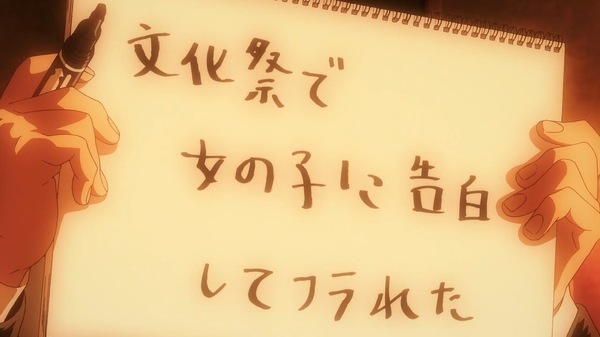 文化祭で
女の子に告白
してフラれた